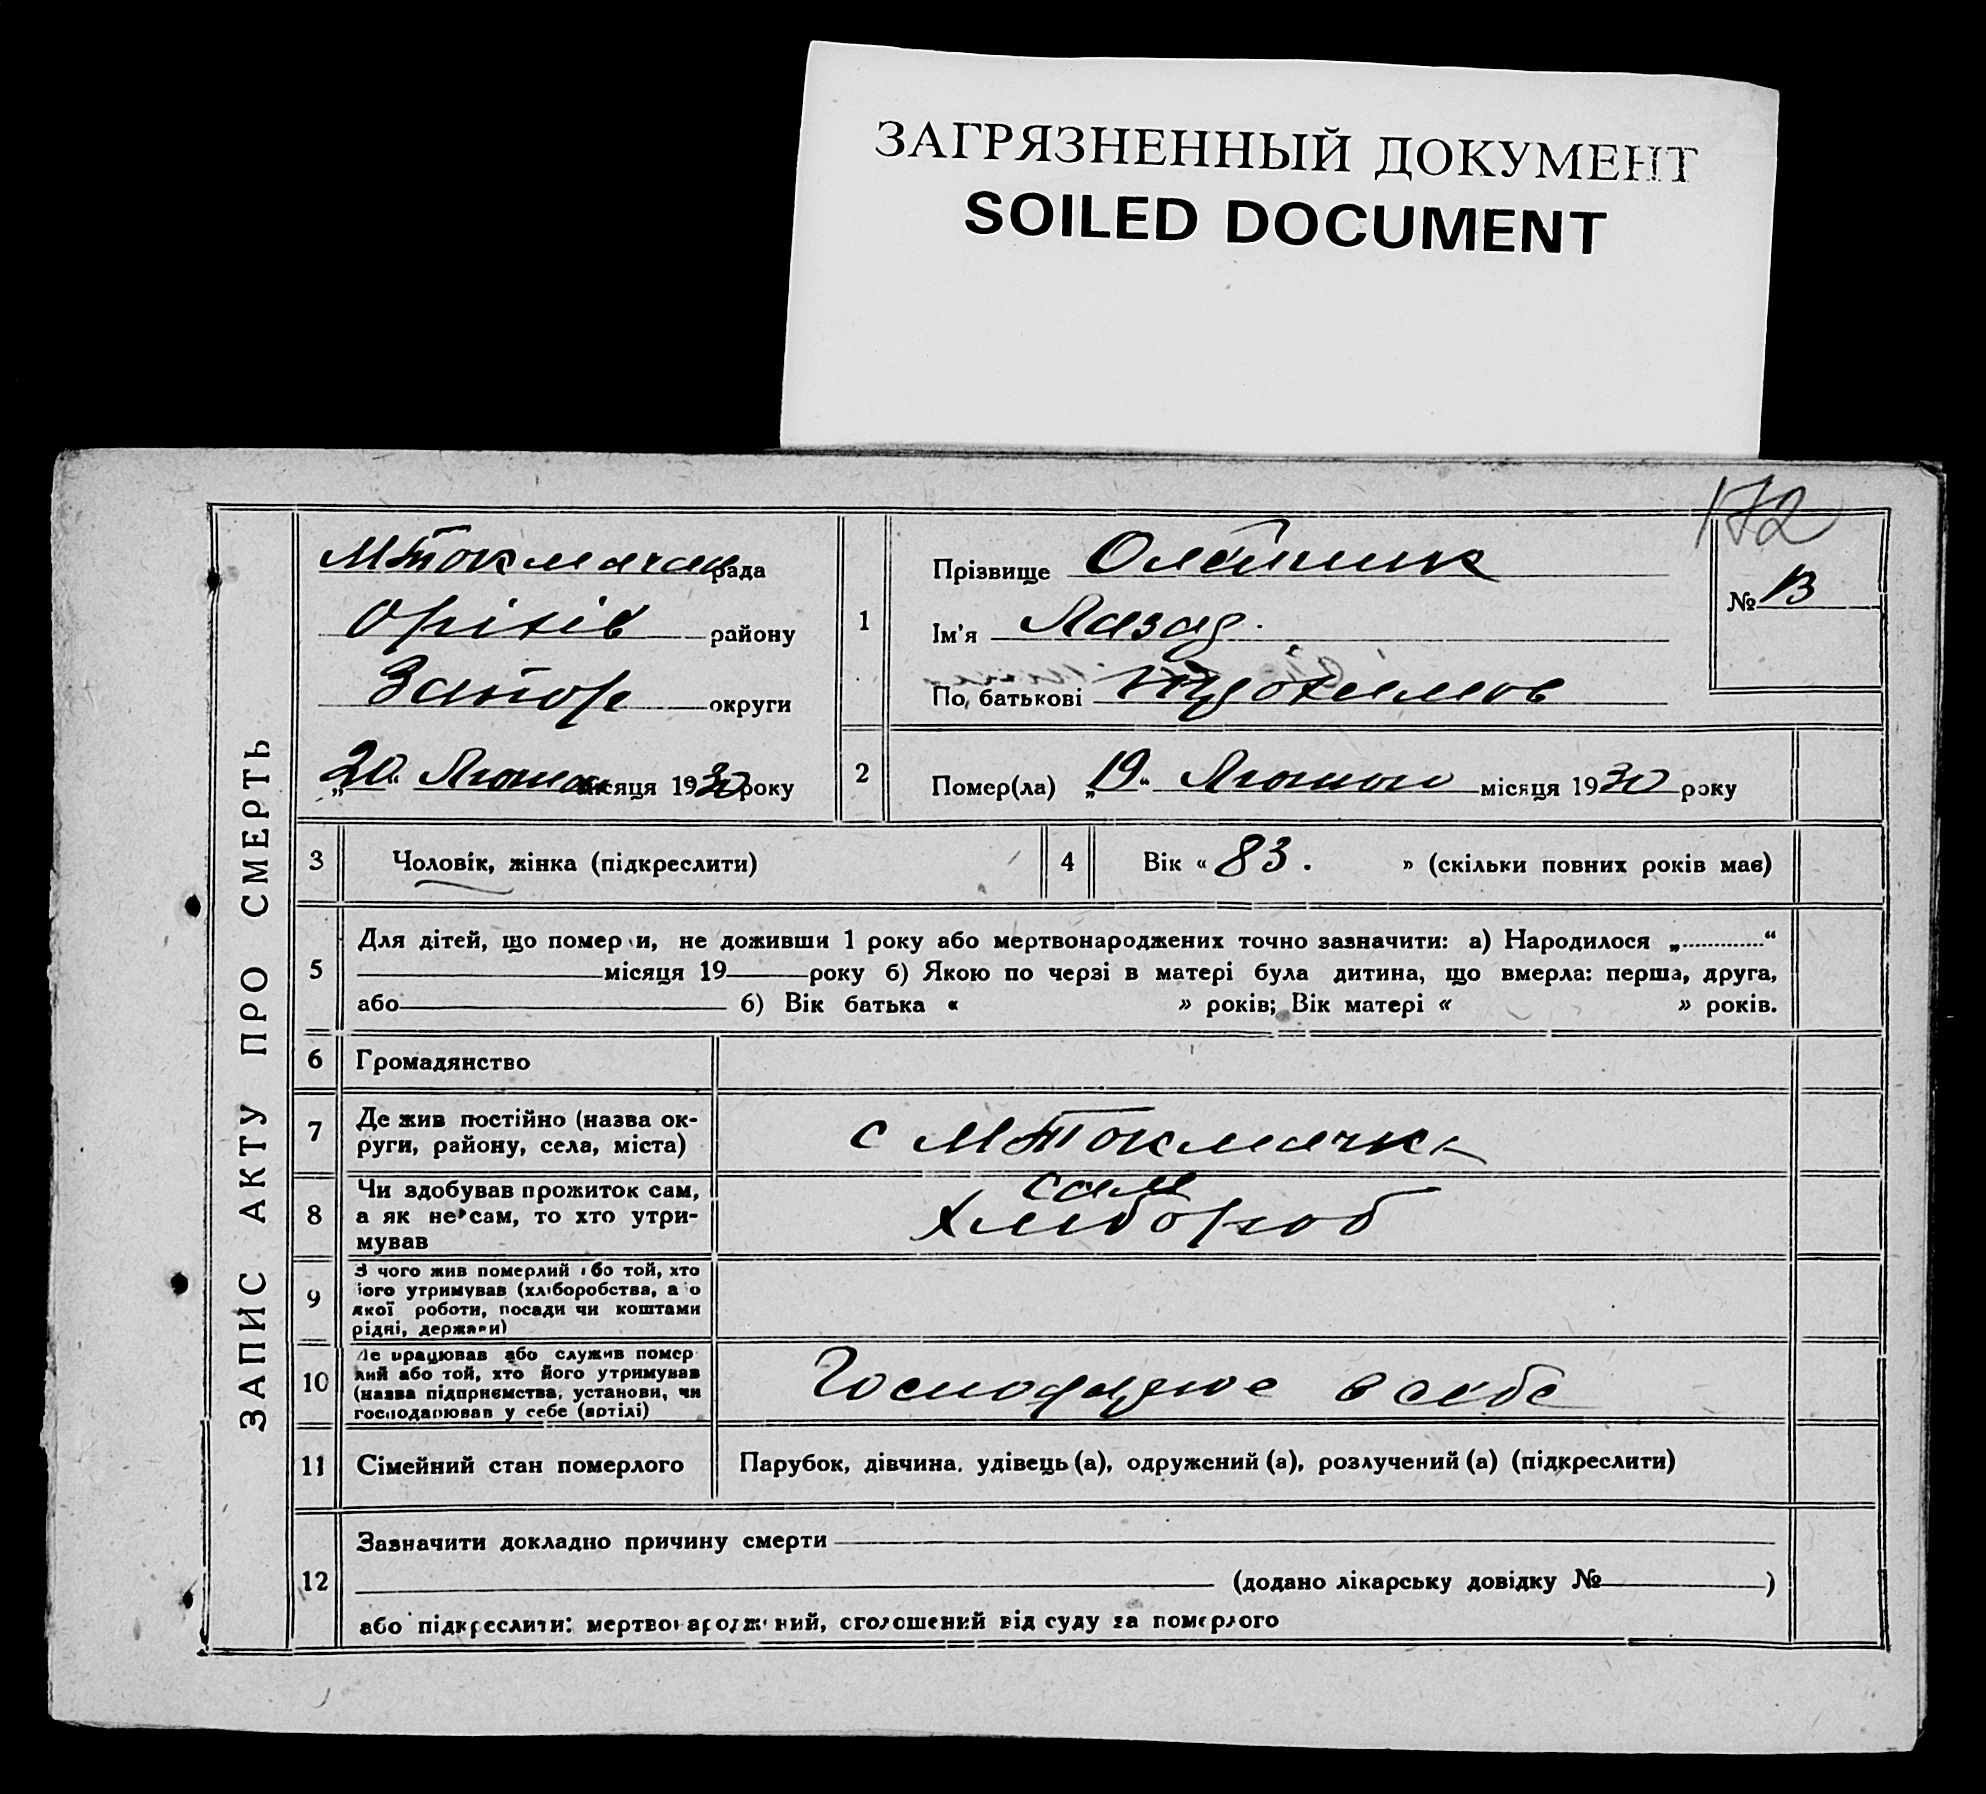 ЗАГРЯЗНЕННЫЙ ДОКУМЕНТ
SOILED DOCUMENT
172
ЗАПИС АКТУ ПРО СМЕРТЬ
МТокмачан рада
Оріхів району
Запор округи
„20“ Лютого місяця 1930 року
1
Прізвище Олейник
Ім'я Лазар.
По батькові
№ 13
2
Помер(ла) „19“ Лютого місяця 1930 року
3 Чоловік, жінка (підкреслити)
4 Вік « 83. » (скільки повних років має)
5 Для дітей, що помер и, не доживши 1 року або мертвонароджених точно зазначити: а) Народилося „ “
місяця 19 року б) Якою по черзі в матері була дитина, що вмерла: перша, друга,
або б) Вік батька « » років; Вік матері « » років.
6 Громадянство
7 Де жив постійно (назва ок-
руги, району, села, міста)
с МТокмачка
8 Чи здобував прожиток сам,
а як не сам, то хто утри-
мував
сам
хлібороб
9 З чого жив померлий або той, хто
його утримував (хліборобства, або
якої роботи, посади чи коштами
рідні, держави)
10 Де працював або служив помер
лий або той, хто його утримував
(назва підприємства, установи, чи
господарював у себе (артілі)
Господарює в себе
11 Сімейний стан померлого
Парубок, дівчина, удівець (а), одружений (а), розлучений (а) (підкреслити)
12 Зазначити докладно причину смерти
(додано лікарську довідку № )
або підкреслити: мертвонароджений, оголошений від суду за померлого